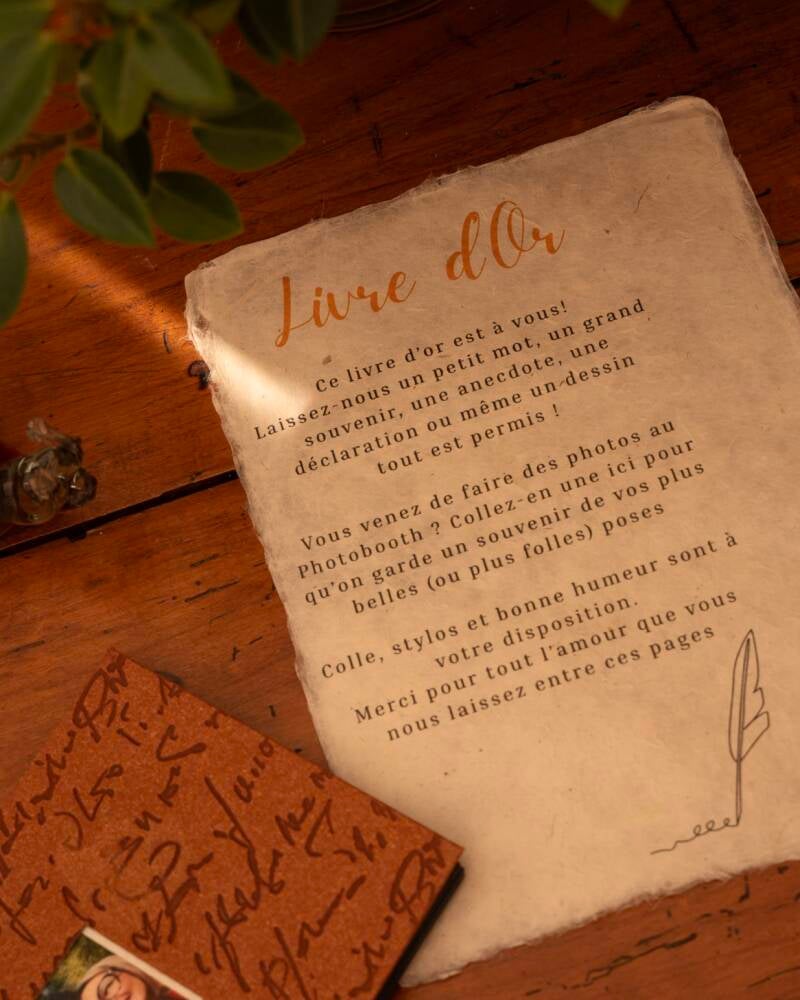 Livre d'Or
Ce livre d'or est à vous!
Laissez-nous un petit mot, un grand
souvenir, une anecdote, une
déclaration ou même un dessin
tout est permis !
Vous venez de faire des photos au
Photobooth ? Collez-en une ici pour
qu'on garde un souvenir de vos plus
belles (ou plus folles) poses
Colle, stylos et bonne humeur sont à
votre disposition.
Merci pour tout l'amour que vous
nous laissez entre ces pages